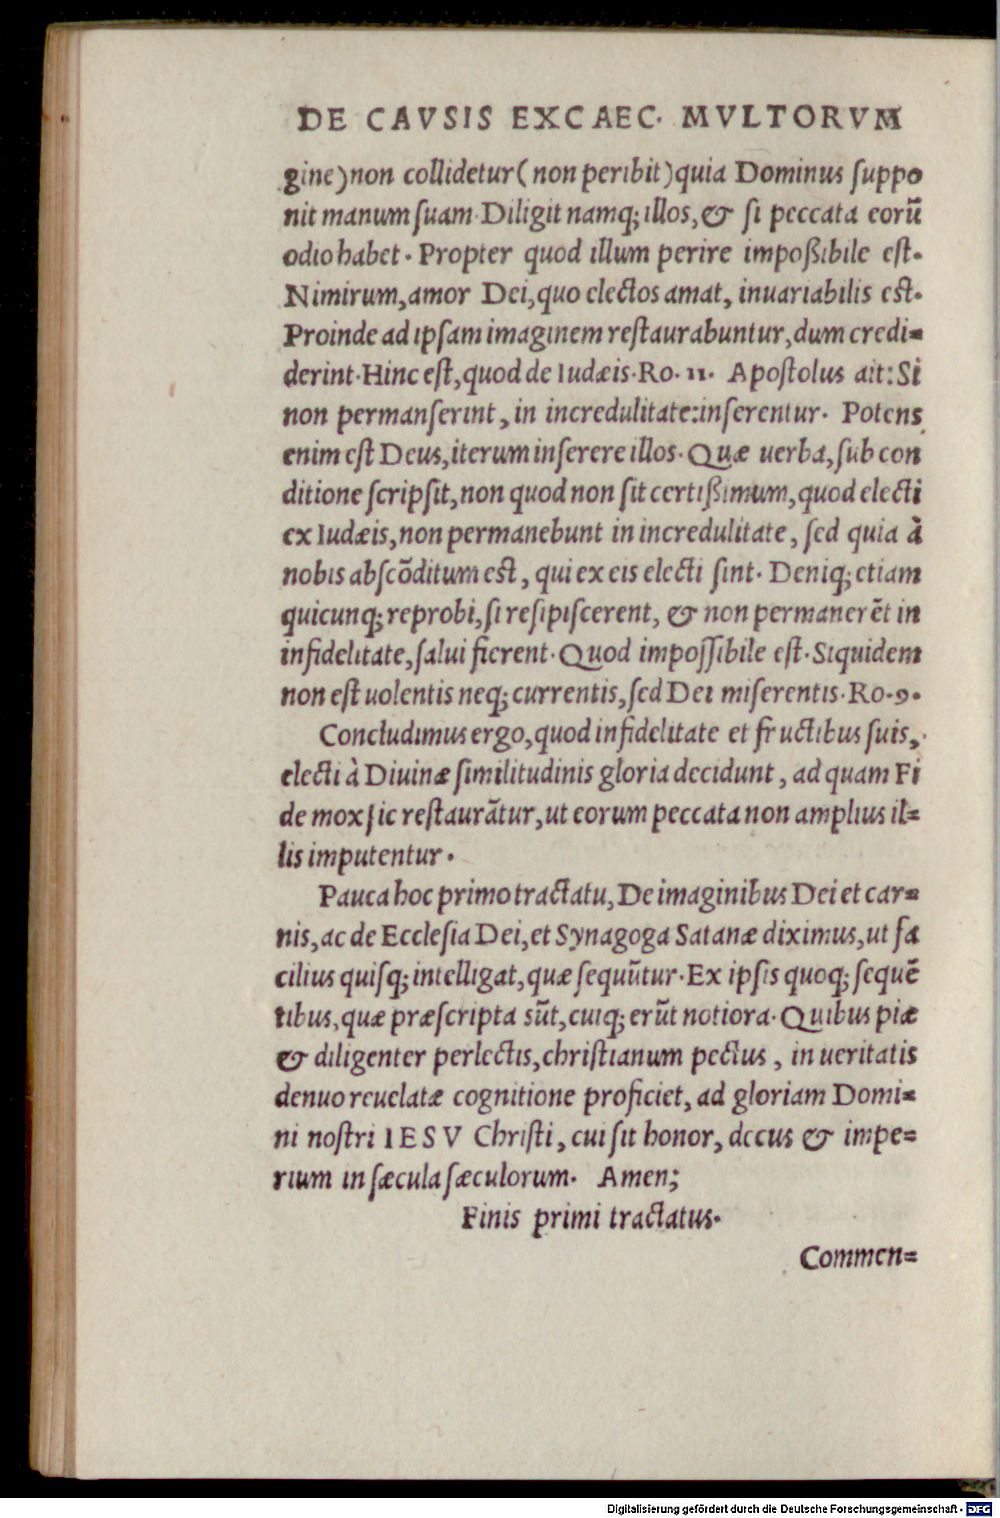 DE CAVSIS EXCAEC. MVLTORVM
gine) non collidetur (non peribit) quia Dominus ſuppo
nit manum ſuam. Diligit namq; illos, & ſi peccata eorũ
odio habet. Propter quod illum perire impoßibile eſt.
Nimirum, amor Dei, quo electos amat, inuariabilis eſt.
Proinde ad ipſam imaginem reſtaurabuntur, dum credi=
derint. Hinc eſt, quod de Iudæis. Ro. 11. Apoſtolus ait: Si
non permanſerint, in incredulitate: inſerentur. Potens
enim eſt Deus, iterum inſerere illos. Quæ uerba, ſub con
ditione ſcripſit, non quod non ſit certißimum, quod electi
ex Iudæis, non permanebunt in incredulitate, ſed quia à
nobis abſcõditum eſt, qui ex eis electi ſint. Deniq; etiam
quicunq; reprobi, ſi reſipiſcerent, & non permanerẽt in
infidelitate, ſalui fierent. Quod impoſſibile eſt. Siquidem
non eſt uolentis neq; currentis, ſed Dei miſerentis. Ro. 9.
Concludimus ergo, quod infidelitate et fructibus ſuis,
electi à Diuinæ ſimilitudinis gloria decidunt, ad quam Fi
de mox ſic reſtaurãtur, ut eorum peccata non amplius il=
lis imputentur.
Pauca hoc primo tractatu, De imaginibus Dei et car=
nis, ac de Eccleſia Dei, et Synagoga Satanæ diximus, ut fa
cilius quiſq; intelligat, quæ ſequũtur. Ex ipſis quoq; ſequẽ
tibus, quæ præſcripta sũt, cuiq; erũt notiora. Quibus piæ
& diligenter perlectis, chriſtianum pectus, in ueritatis
denuo reuelatæ cognitione proficiet, ad gloriam Domi=
ni noſtri IESV Chriſti, cui ſit honor, decus & impe=
rium in ſæcula ſæculorum. Amen;
Finis primi tractatus.
Commen=
Digitalisierung gefördert durch die Deutsche Forschungsgemeinschaft - DFG